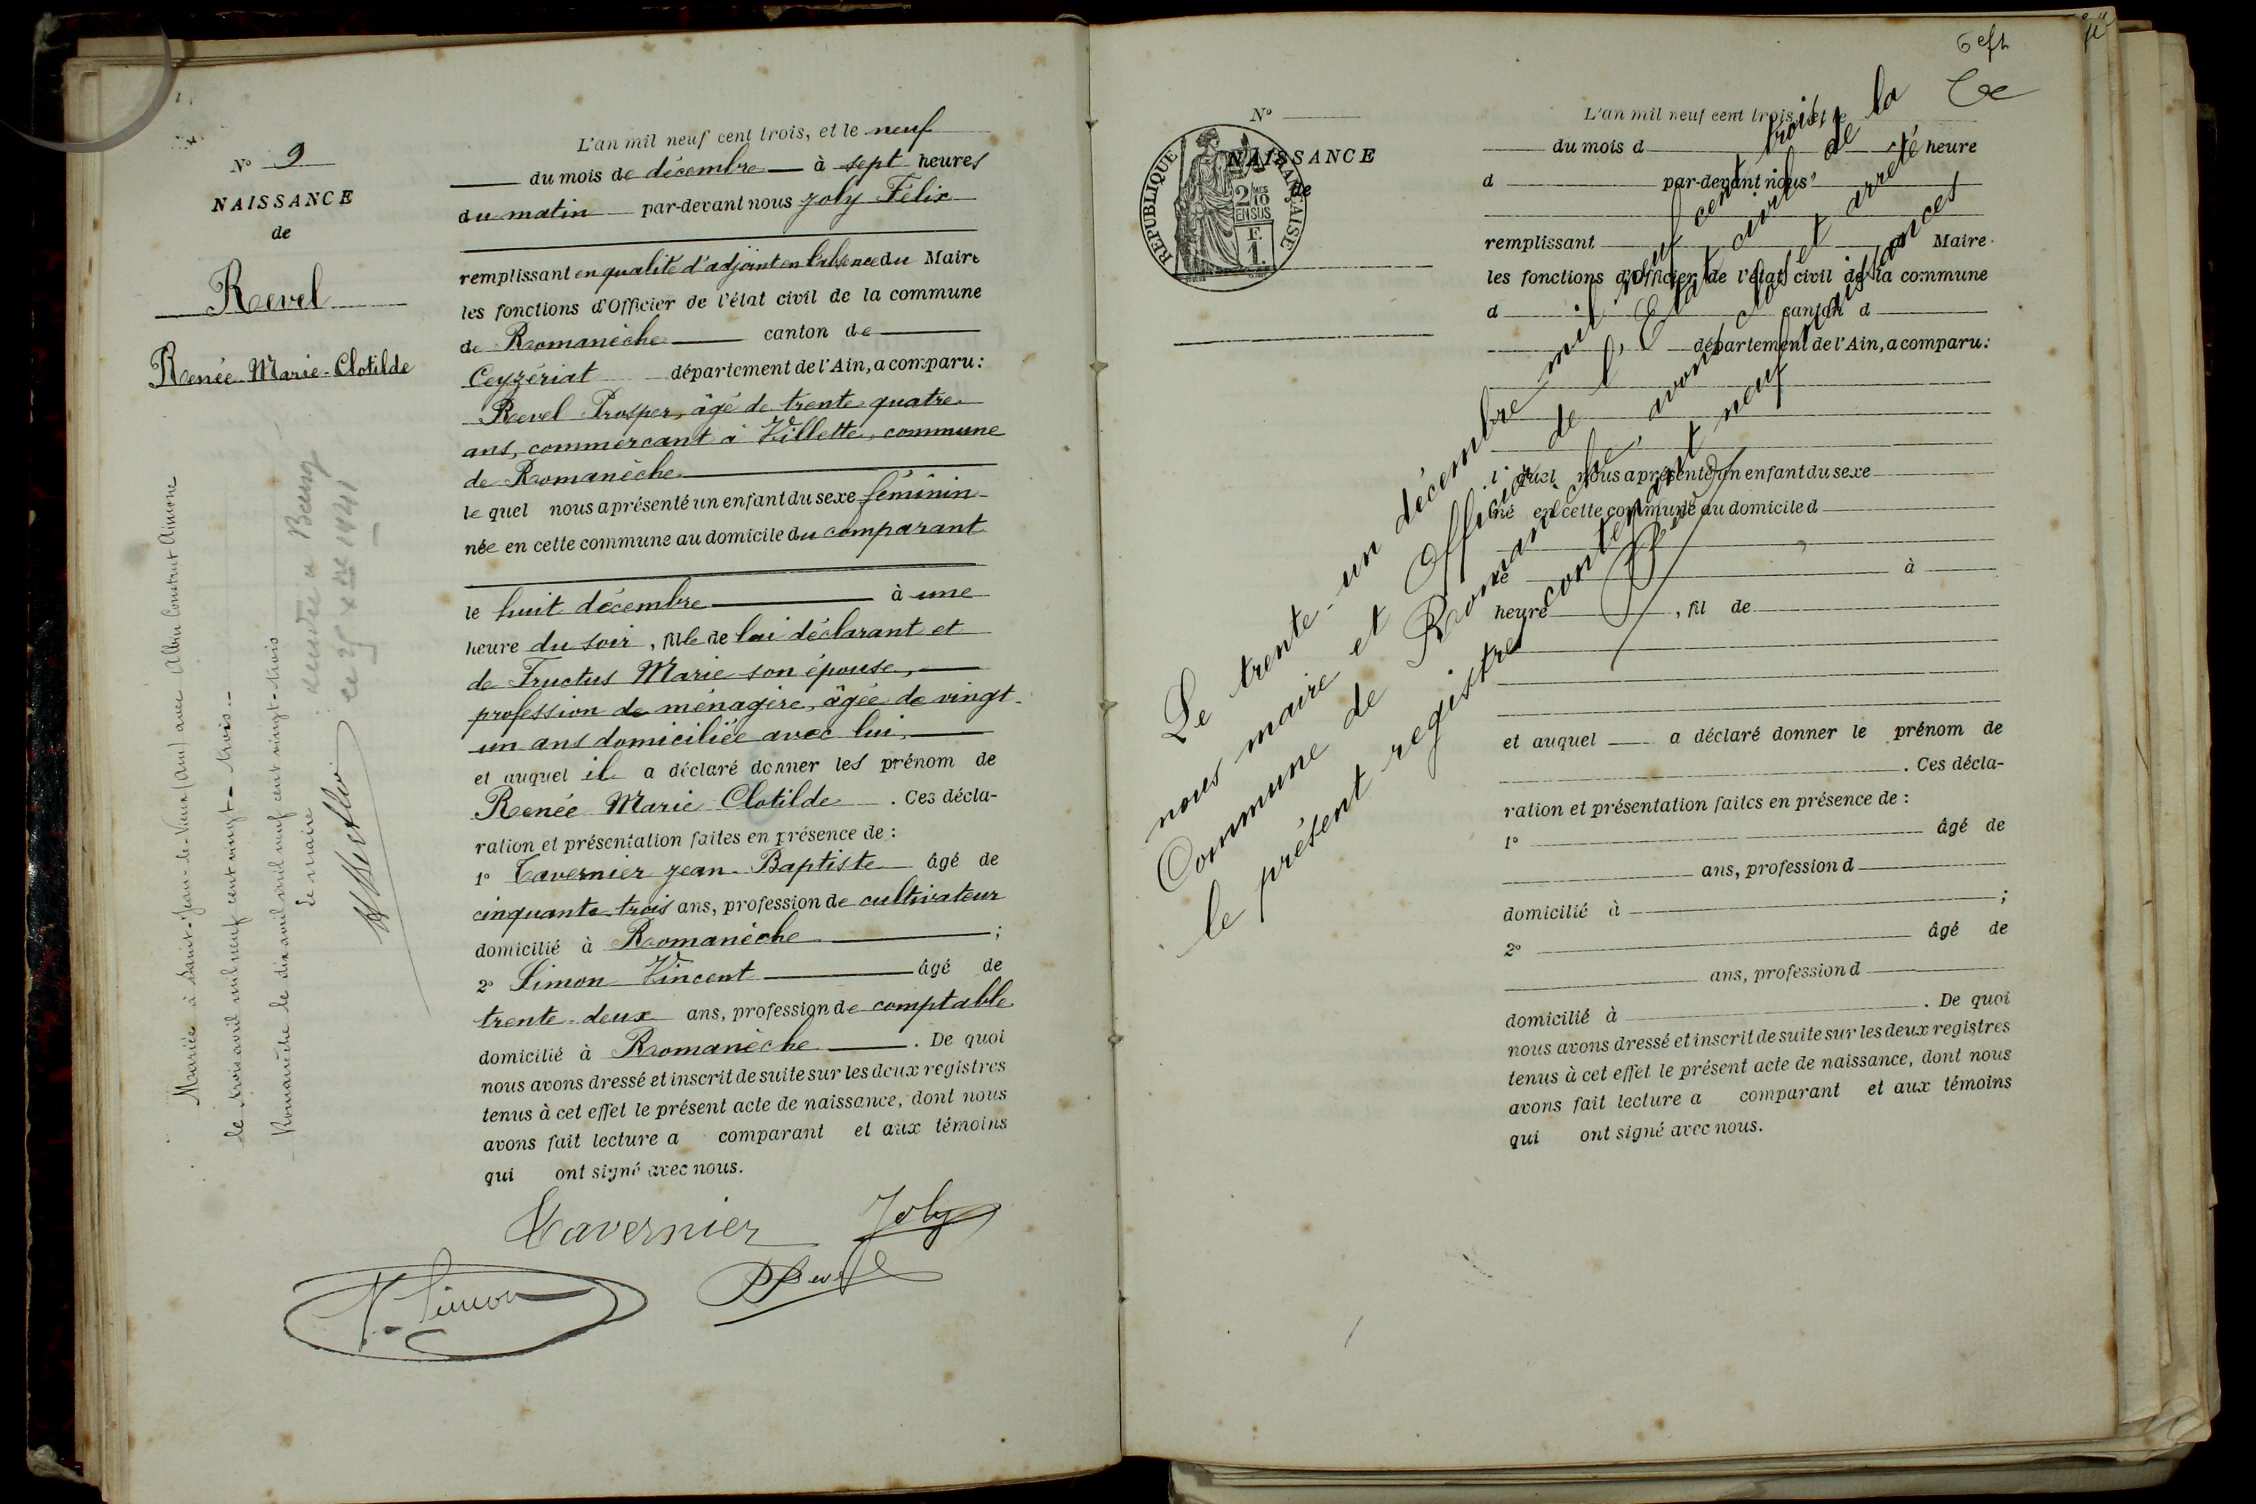 N° 9
NAISSANCE
de
Revel
Renée Marie-Clotilde
Mariée à Saint-Jean-le-Vieux (Ain) avec Albin Constant Aimone
le trois avril mil neuf cent vingt-trois._
Romanèche le dix avril mil neuf cent vingt-trois
Le maire
ce 25 Xbre 1941
L'an mil neuf cent trois, et le neuf
du mois de décembre à sept heures
du matin par-devant nous Joly Félix
remplissant en qualité d'adjoint en l'absence du Maire
les fonctions d'Officier de l'état civil de la commune
de Romanèche canton de
Ceyzériat département de l'Ain, a comparu:
Revel Prosper, âgé de trente quatre
ans, commerçant à Villette, commune
de Romanèche
le quel nous a présenté un enfant du sexe féminin
née en cette commune au domicile du comparant
le huit décembre à une
heure du soir, fille de lui déclarant et
de Fructus Marie son épouse,
profession de ménagère, âgée de vingt-
un ans domiciliée avec lui,
et auquel il a déclaré donner les prénom de
Renée Marie Clotilde. Ces décla-
ration et présentation faites en présence de :
1° Tavernier Jean-Baptiste âgé de
cinquante-trois ans, profession de cultivateur
domicilié à Romanèche ;
2° Simon Vincent âgé de
trente-deux ans, profession de comptable
domicilié à Romanèche. De quoi
nous avons dressé et inscrit de suite sur les deux registres
tenus à cet effet le présent acte de naissance, dont nous
avons fait lecture a comparant et aux témoins
qui ont signé avec nous.
Tavernier Joly
V. Simon P Revel
N°
NAISSANCE
de
REPUBLIQUE FRANÇAISE
2/10 EN SUS
F. 1.
L'an mil neuf cent trois, et le
du mois d à heure
d par-devant nous
remplissant Maire
les fonctions d'Officier de l'état civil de la commune
d canton d
département de l'Ain, a comparu:
l quel nous a présenté un enfant du sexe
né en cette commune au domicile d
le à
heure , fil de
et auquel a déclaré donner le prénom de
. Ces décla-
ration et présentation faites en présence de :
1° âgé de
ans, profession d
domicilié à ;
2° âgé de
ans, profession d
domicilié à . De quoi
nous avons dressé et inscrit de suite sur les deux registres
tenus à cet effet le présent acte de naissance, dont nous
avons fait lecture a comparant et aux témoins
qui ont signé avec nous.
Le trente-un décembre mil neuf cent trois,
nous maire et Officier de l'Etat civil de la
Commune de Romanèche, avons clos et arreté
le présent registre contenant neuf naissances